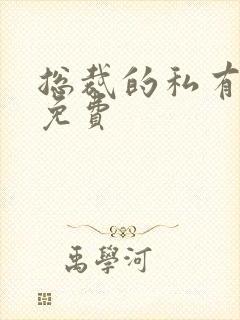 总裁的私有
免费
禹學河